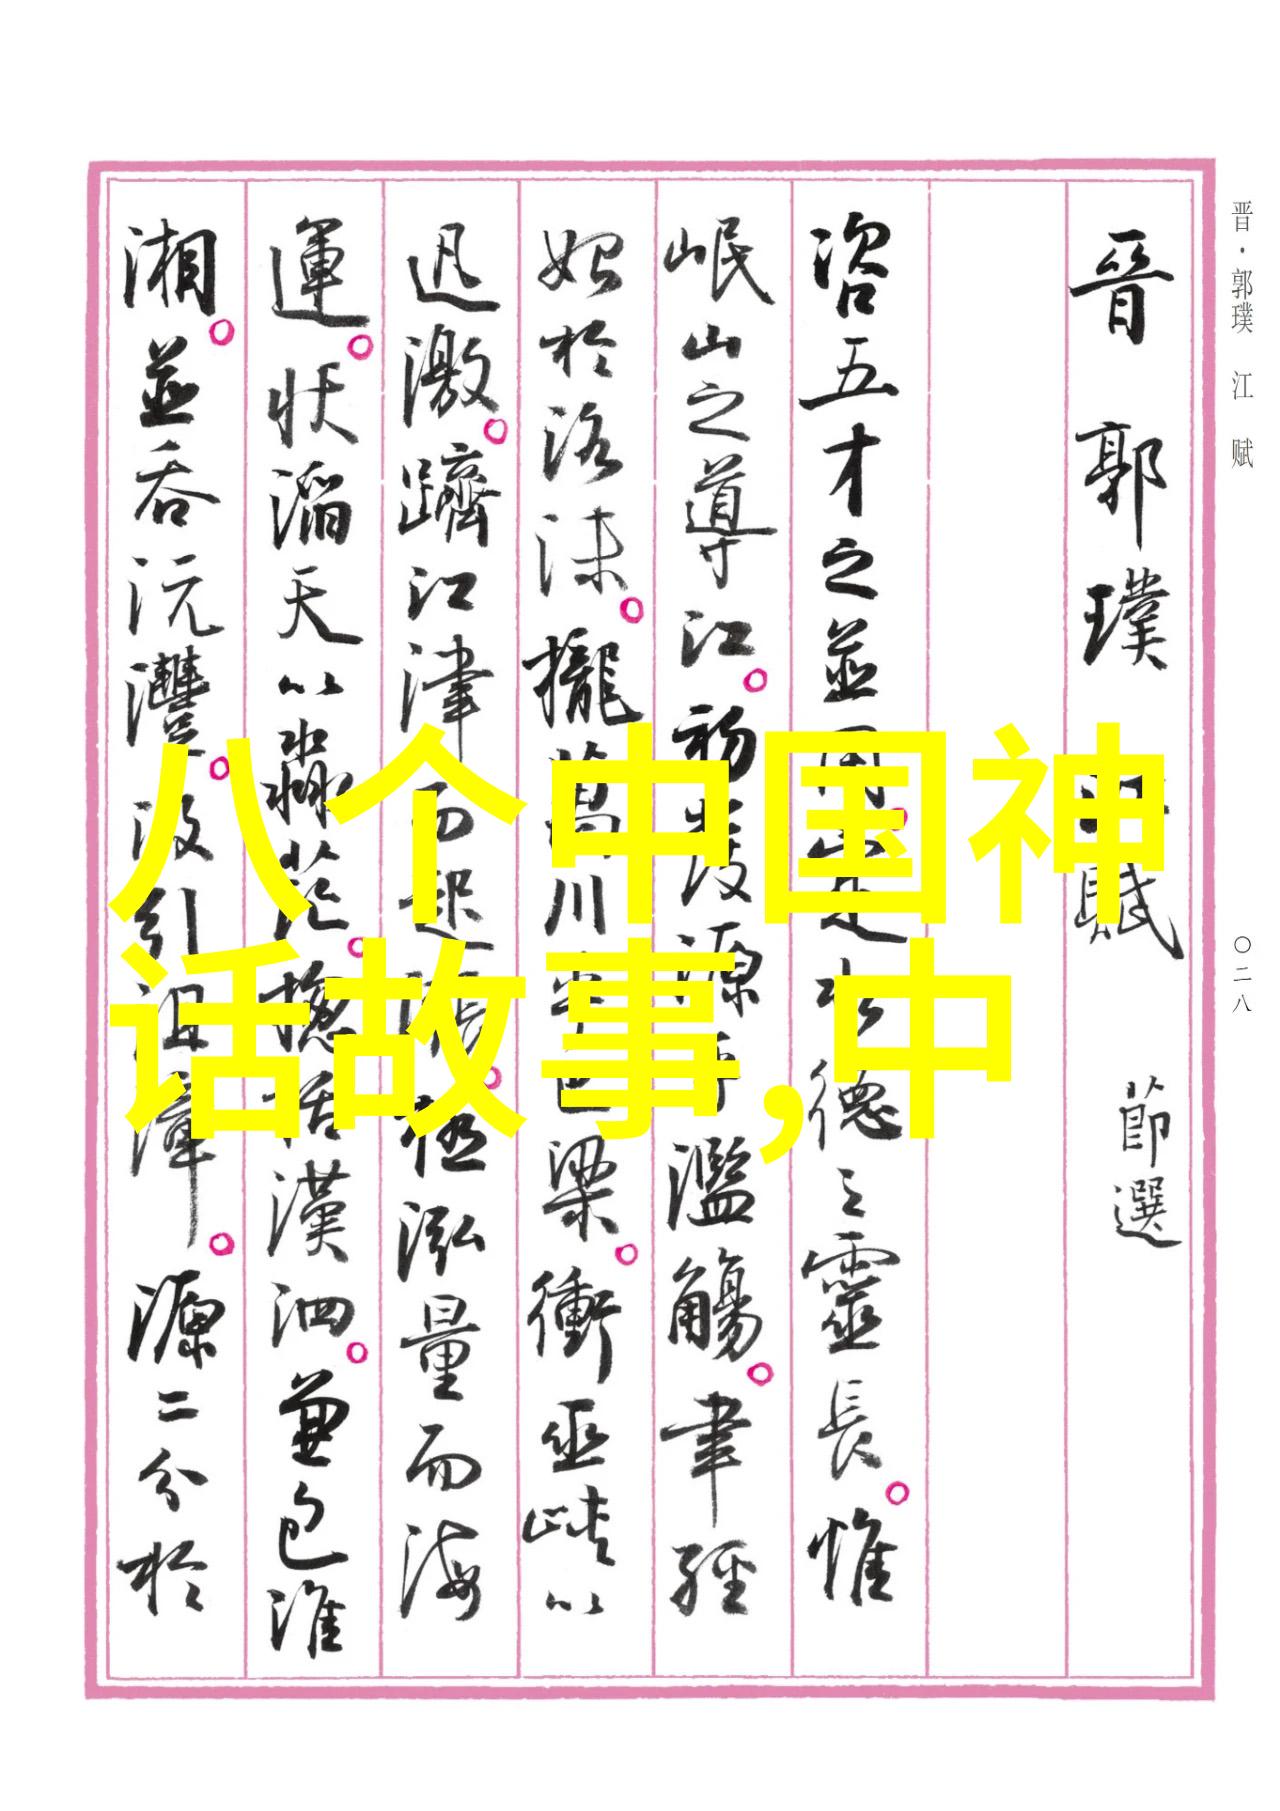 晋·郭璞 江 赋
〇二八
晉 郭 璞 賦 節選
咨五才之並用 水德之靈長。惟
岷山之導江。初發源乎濫觴。聿經
始於洛沬。攏萬川乎巴梁。衝巫峽以
迅激。躋江津而起漲。極泓量而海
運。狀滔天以淼茫。摠括漢泗。兼包淮
湘。並吞沅澧。汲引沮漳。源二分於
八个中国神
话故事,中